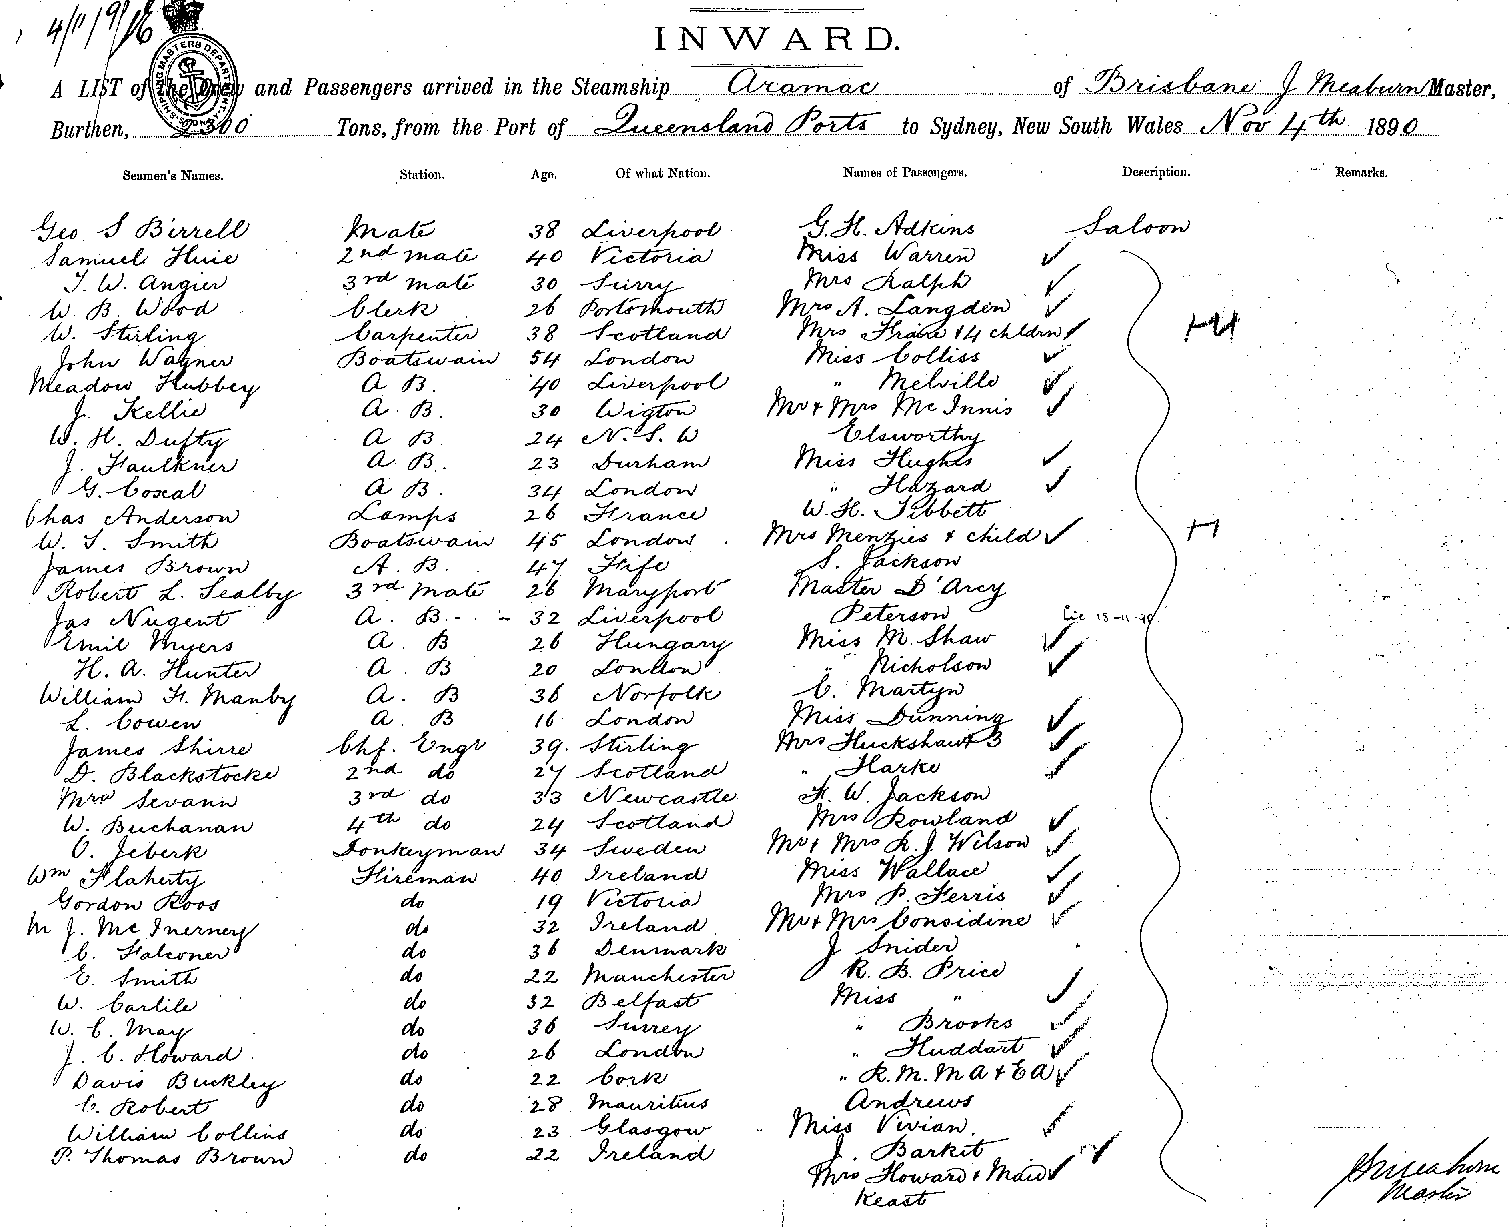 4/11/90
INWARD.
A LIST of the Crew and Passengers arrived in the Steamship Aramac of Brisbane J Meaburn Master,
Burthen, 2300 Tons, from the Port of Queensland Ports to Sydney, New South Wales Nov 4th 1890
Seamen's Names. Station. Age. Of what Nation. Names of Passengers. Description. Remarks.
Geo S Birrell Mate 38 Liverpool G. H. Adkins Saloon
Samuel Huie 2nd mate 40 Victoria Miss Warren
T. W. Angier 3rd mate 30 Surry Mrs Ralph
W B Wood Clerk 26 Portsmouth Mrs A. Langden
W. Stirling Carpenter 38 Scotland Mrs Fraire & 4 childrn
John Wagner Boatswain 54 London Miss Colliss
Meadow Hubbey A B. 40 Liverpool " Melville
J. Kellie A. B. 30 Wigton Mr & Mrs McInnis
W. H. Dufty A B 24 N. S. W Elsworthy
J. Faulkner A B. 23 Durham Miss Hughes
G. Coxal A B. 34 London " Hazard
Chas Anderson Lamps 26 France W. H. Tibbett
W. S. Smith Boatswain 45 London Mrs Menzies & child
James Brown A. B. 47 Fife S. Jackson
Robert L. Sealby 3rd Mate 26 Maryport Master D'Arcy
Jas Nugent A. B. 32 Liverpool Peterson
Emil Myers A. B 26 Hungary Miss M. Shaw
H. A. Hunter A. B 20 London " Nicholson
William H. Manby A. B 36 Norfolk C. Martyn
L. Cowen A. B 16 London Miss Dunning
James Shirre Chf. Engr 39. Stirling Mrs Huckshaw & 3
D. Blackstocke 2nd do 27 Scotland " Harke
3rd do 33 Newcastle F. W. Jackson
W. Buchanan 4th do 24 Scotland Mrs Rowland
O. Jeberk Donkeyman 34 Sweden Mr & Mrs R. J Wilson
Wm Flaherty Fireman 40 Ireland Miss Wallace
Gordon Roos do 19 Victoria Mrs P. Ferris
M J. McInerney do 32 Ireland Mr & Mrs Considine
C. Falconer do 36 Denmark J Snider
E. Smith do 22 Manchester R. B. Price
W. Carlile do 32 Belfast Miss "
W. C. May do 36 Surrey " Brooks
J. C. Howard do 26 London " Huddart
Davis Buckley do 22 Cork " R. M. M A & E A
C. Robert do 28 Mauritius Andrews
William Collins do 23 Glasgow Miss Vivian
P. Thomas Brown do 22 Ireland J. Barkit
Mrs Howard & Maid
Keast
J Meaburn
Master